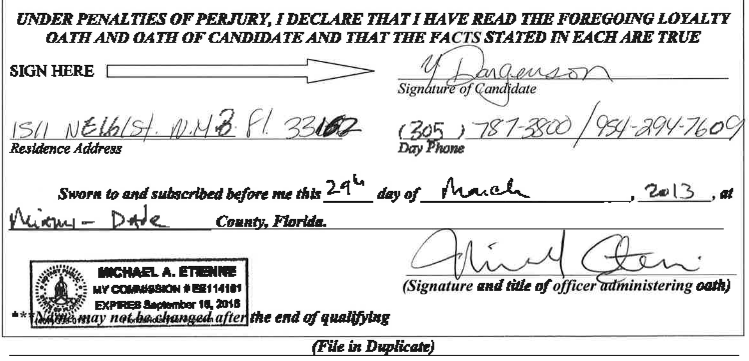 UNDER PENALTIES OF PERJURY, I DECLARE THAT I HAVE READ THE FOREGOING LOYALTY
OATH AND OATH OF CANDIDATE AND THAT THE FACTS STATED IN EACH ARE TRUE
SIGN HERE
Y Dargenson
Signature of Candidate
1511 NE161St. N.M.B Fl. 33162 (305) 787-3800 / 954-294-7609
Residence Address Day Phone
Sworn to and subscribed before me this 29th day of March, 2013, at
Miami-Dade County, Florida.
MICHAEL A. ETIENNE
MY COMMISSION # EE114161
EXPIRES September 16, 2015
(Signature and title of officer administering oath)
***Name may not be changed after the end of qualifying
(File in Duplicate)